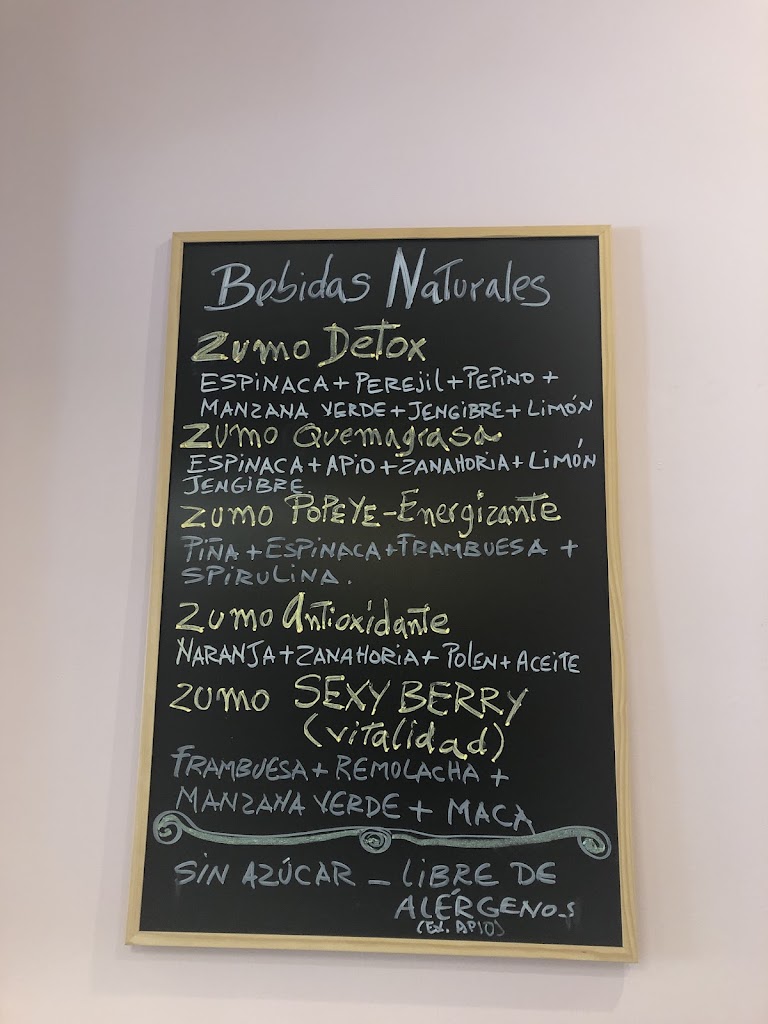 Bebidas Naturales
Zumo Detox
ESPINACA + PEREJIL + PEPINO +
MANZANA VERDE + JENGIBRE + LIMÓN
Zumo Quemagrasa
ESPINACA + APIO + ZANAHORIA + LIMÓN
JENGIBRE.
ZUMO POPEYE - Energizante
PIÑA + ESPINACA + FRAMBUESA +
SPIRULINA.
ZUMO Antioxidante
NARANJA + ZANAHORIA + POLEN + ACEITE
ZUMO SEXY BERRY
(vitalidad)
FRAMBUESA + REMOLACHA +
MANZANA VERDE + MACA
SIN AZÚCAR - LIBRE DE
ALÉRGENOS
APIO)